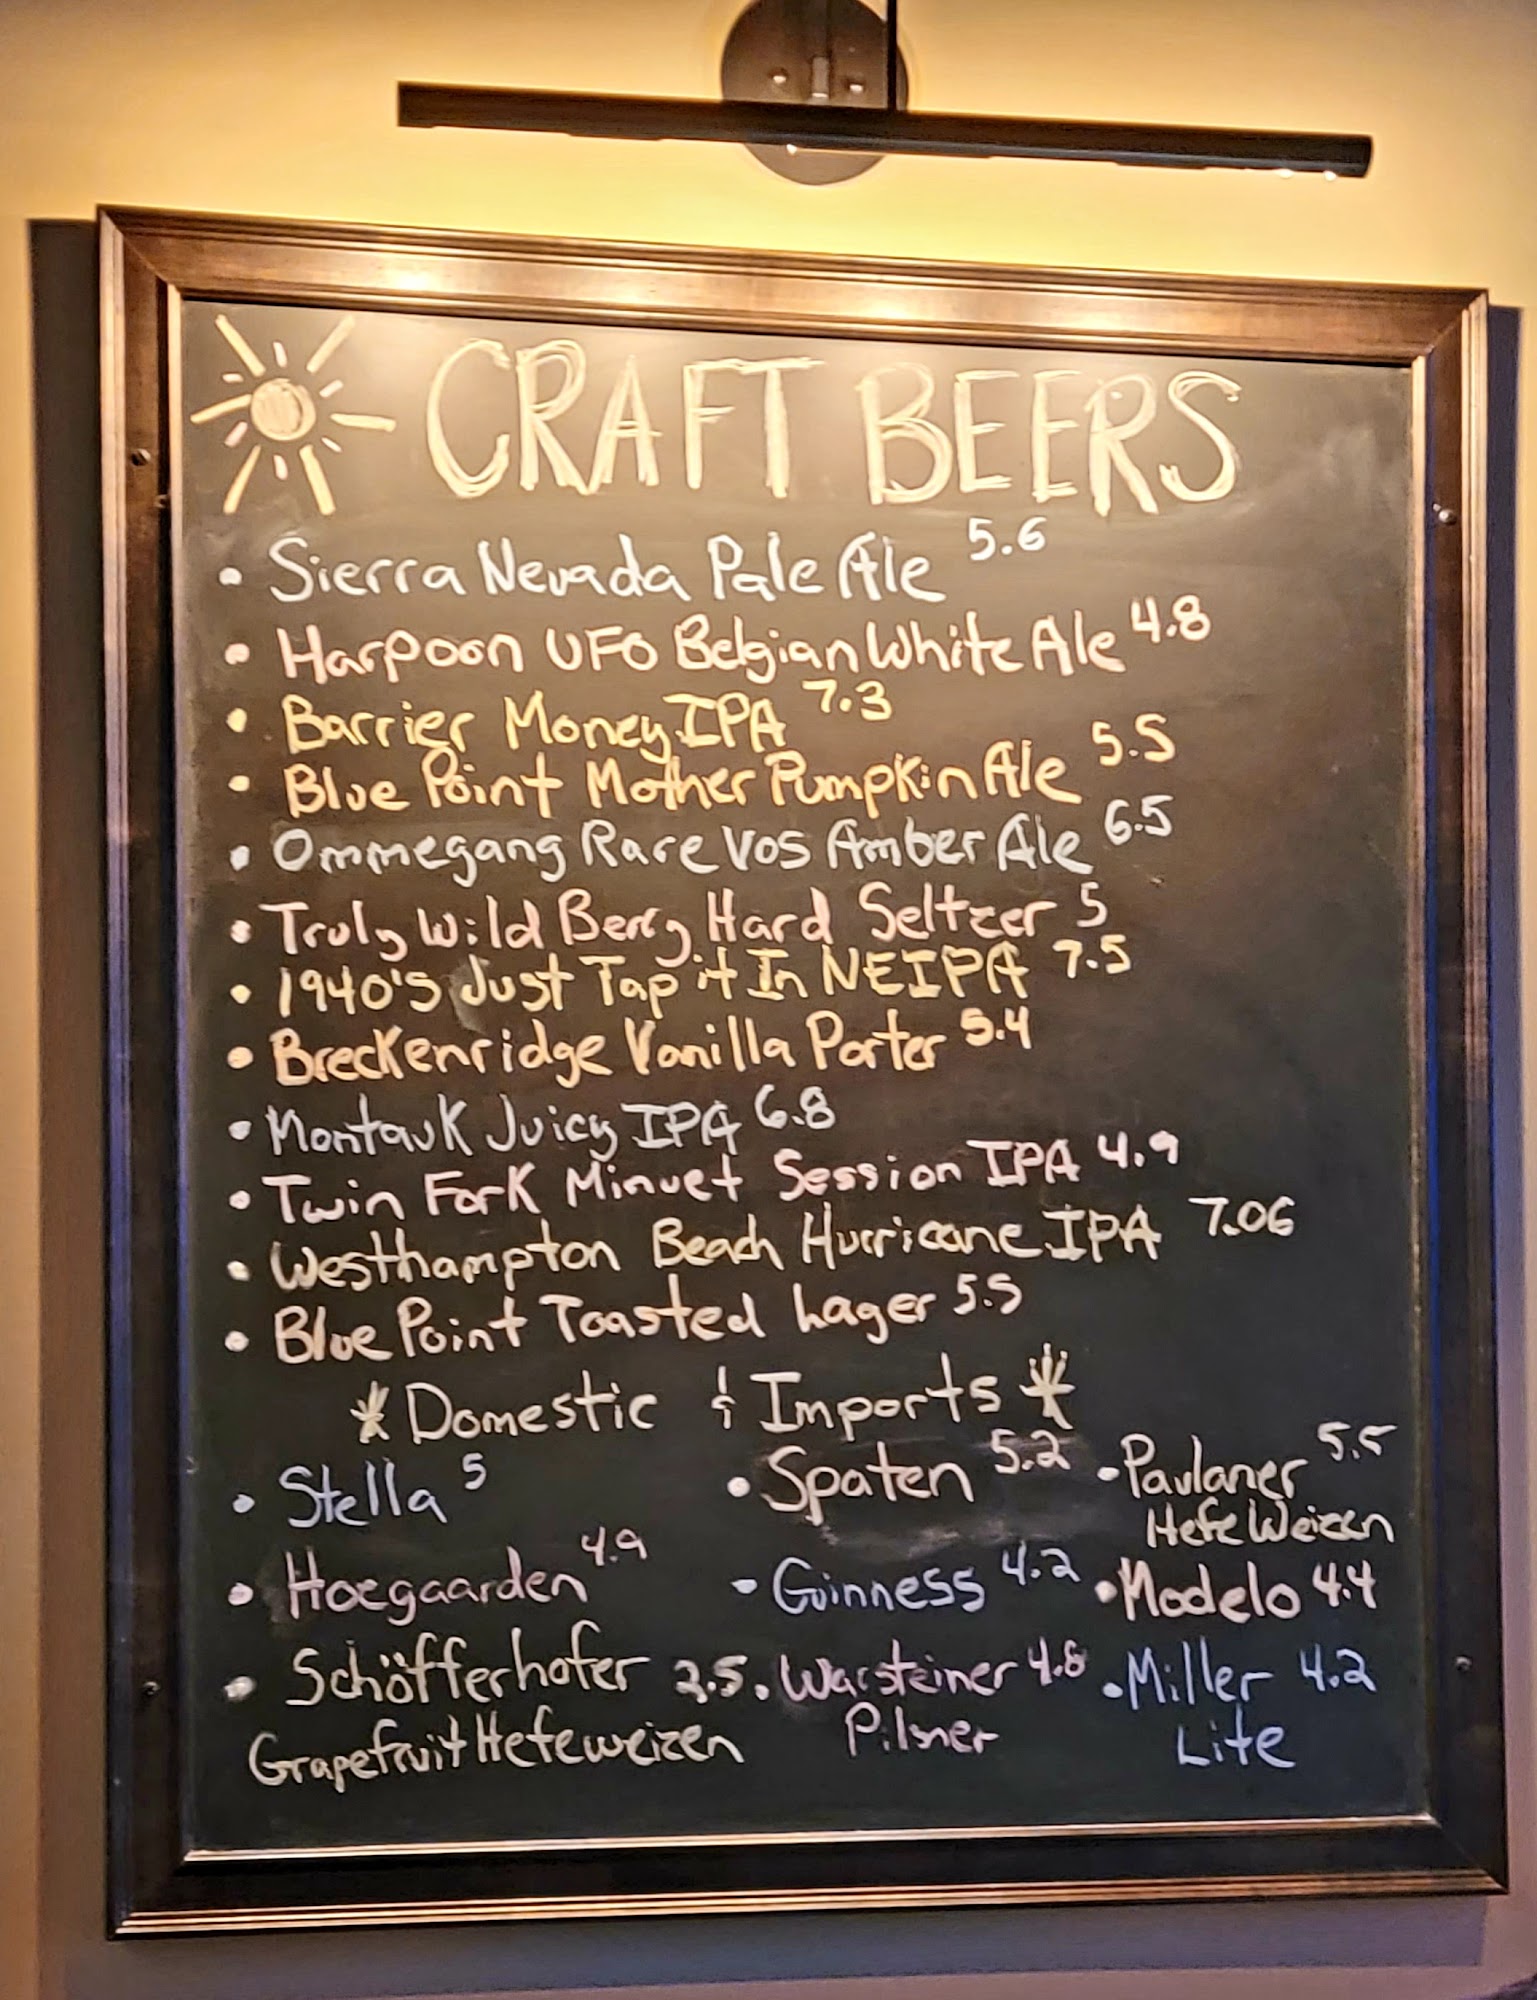 CRAFT BEERS
• Sierra Nevada Pale Ale 5.6
• Harpoon UFO Belgian White Ale 4.8
• Barrier Money IPA 7.3
• Blue Point Mother Pumpkin Ale 5.5
• Ommegang Rare Vos Amber Ale 6.5
• Truly Wild Berry Hard Seltzer 5
• 1940's Just Tap it In NEIPA 7.5
• Breckenridge Vanilla Porter 5.4
• Montauk Juicy IPA 6.8
• Twin Fork Minuet Session IPA 4.9
• Westhampton Beach Hurricane IPA 7.06
• Blue Point Toasted Lager 5.5
Domestic & Imports
• Stella 5
• Spaten 5.2
• Paulaner 5.5
HefeWeizen
• Hoegaarden 4.9
• Guinness 4.2
• Modelo 4.4
• Schöfferhofer 2.5
Grapefruit Hefeweizen
• Warsteiner 4.8
Pilsner
• Miller 4.2
Lite